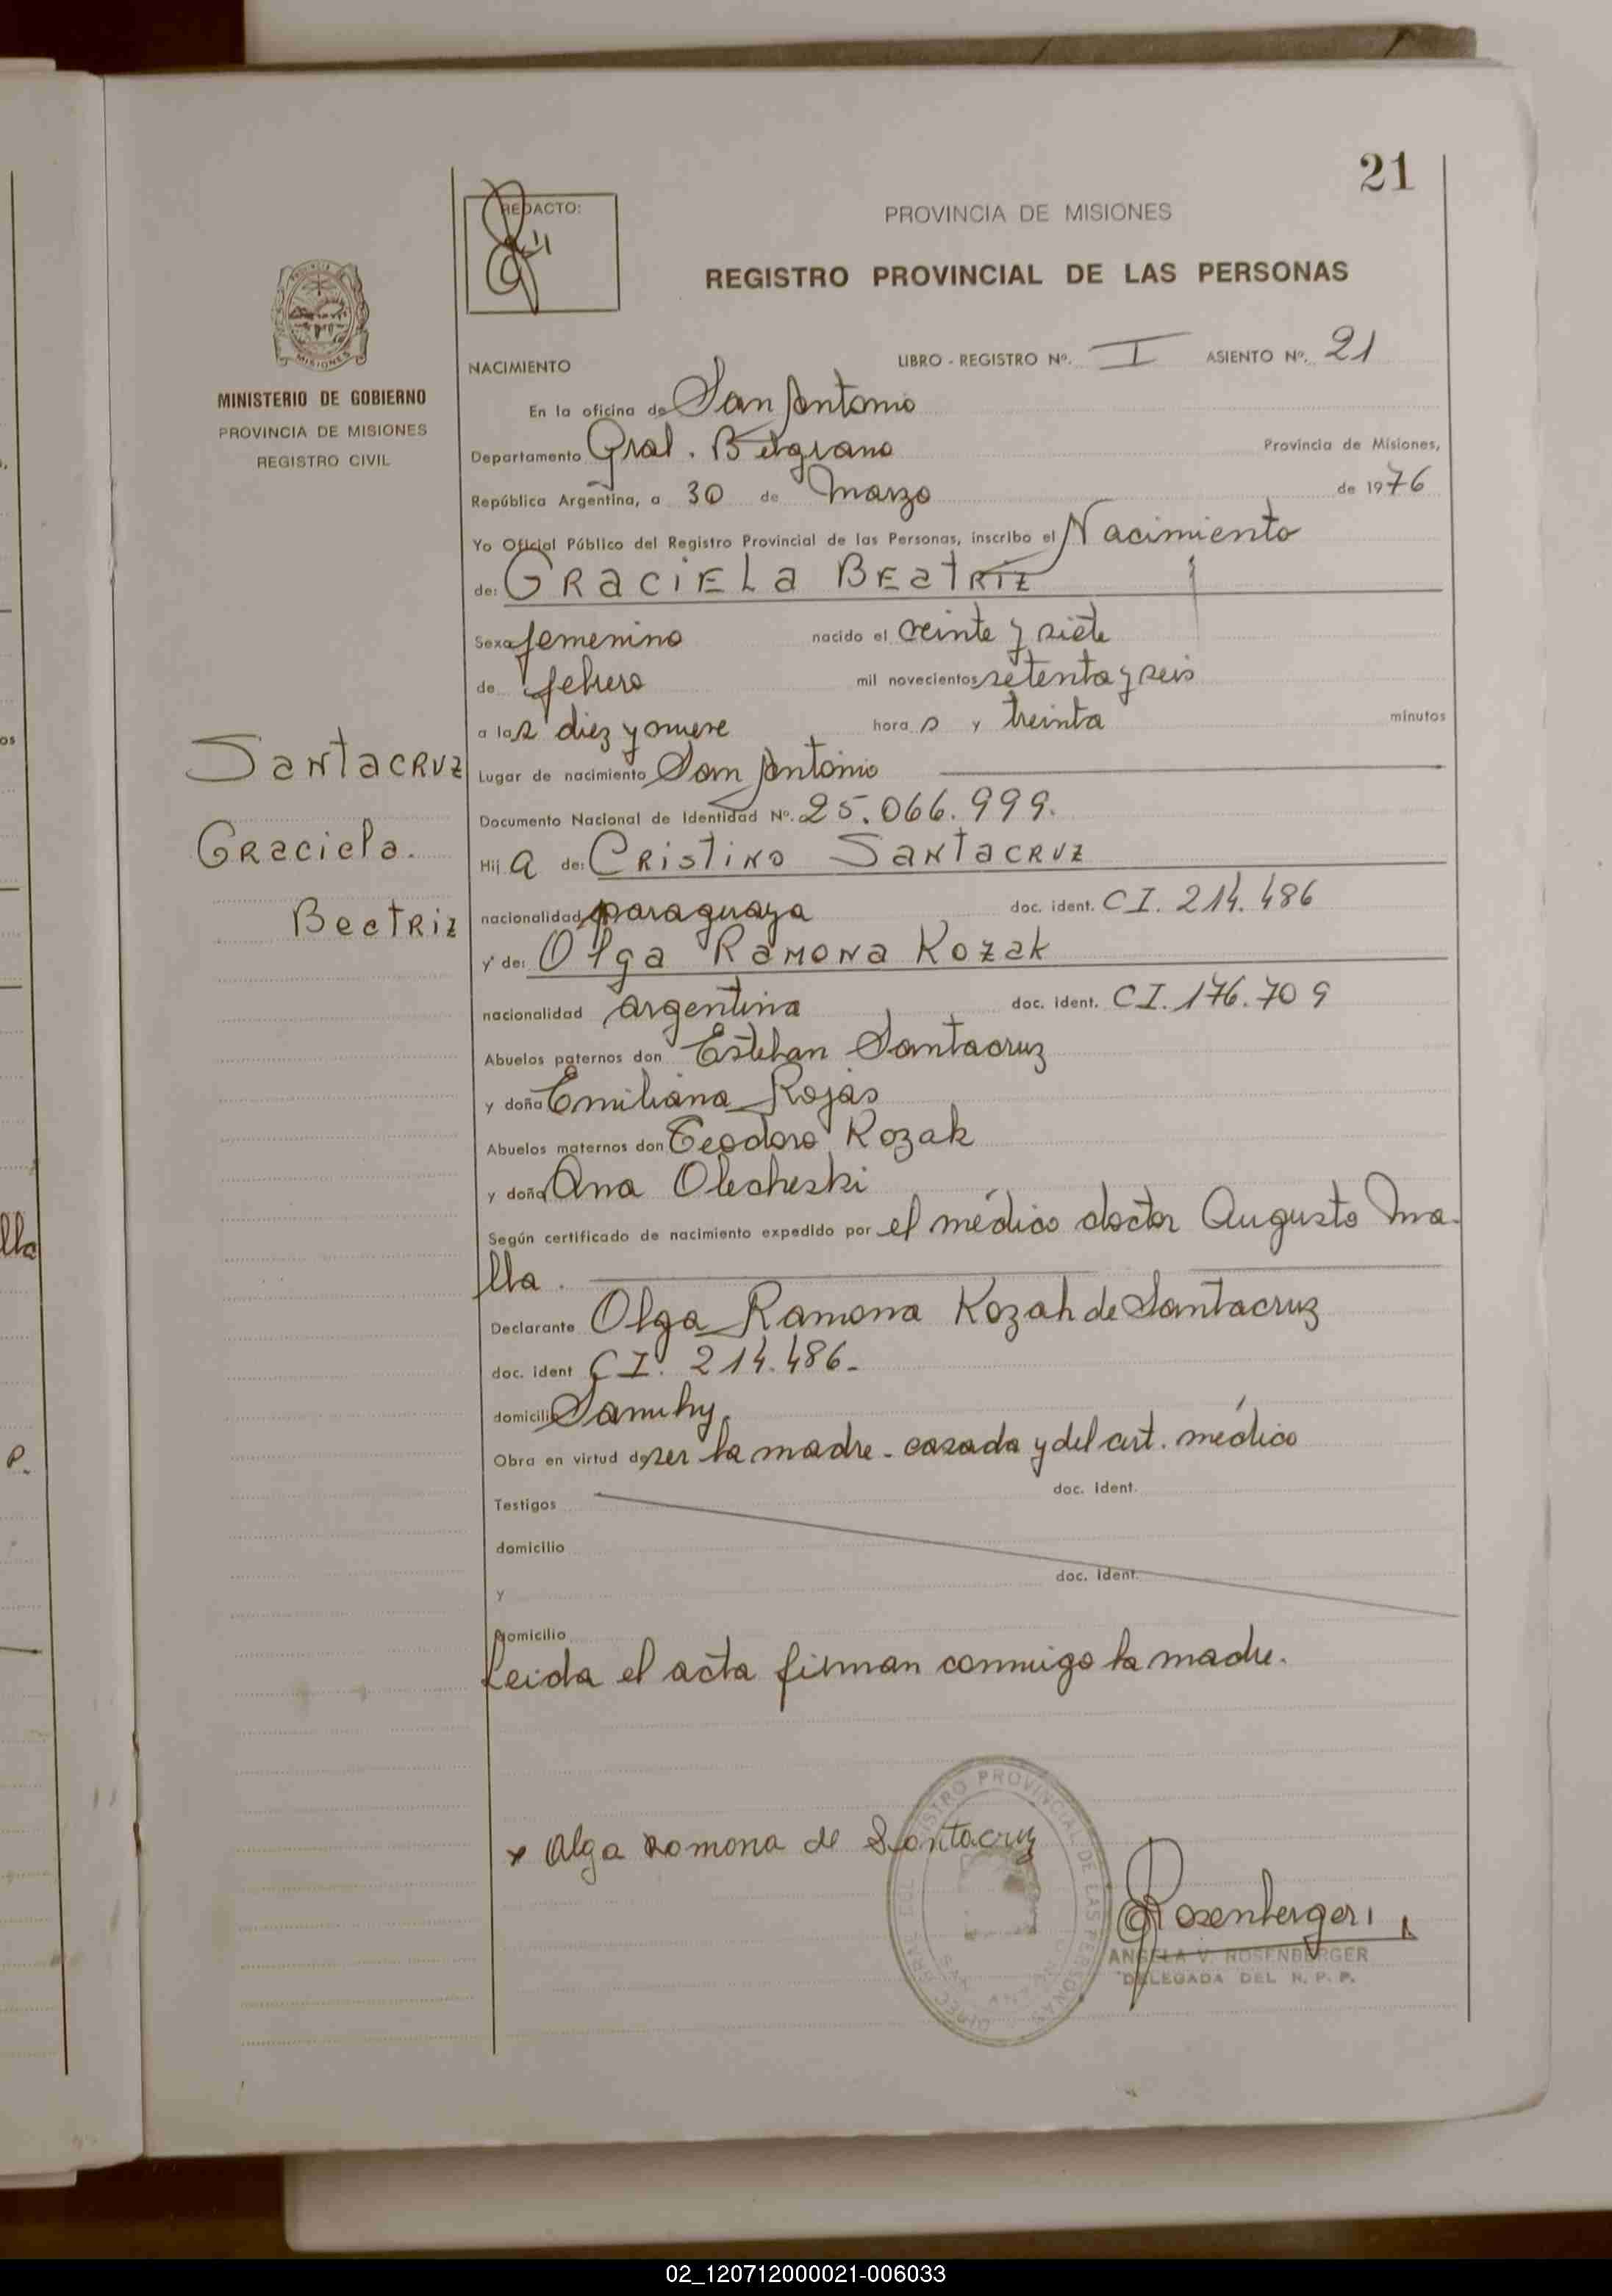 21
REDACTO:
PROVINCIA DE MISIONES
REGISTRO PROVINCIAL DE LAS PERSONAS
MINISTERIO DE GOBIERNO
PROVINCIA DE MISIONES
REGISTRO CIVIL
NACIMIENTO LIBRO - REGISTRO Nº. I ASIENTO Nº. 21
En la oficina de San Antonio
Departamento Gral. Belgrano Provincia de Misiones,
República Argentina, a 30 de Marzo de 1976
Yo Oficial Público del Registro Provincial de las Personas, inscribo el Nacimiento
de: GRACIELA BEATRIZ
Sexo femenino nacido el veinte y siete
de febrero mil novecientos setenta y seis
a las diez y nueve hora s y treinta minutos
Santacruz
Graciela.
Beatriz
Lugar de nacimiento San Antonio
Documento Nacional de Identidad Nº. 25.066.999.
Hij a de: CRISTINO SANTACRUZ
nacionalidad paraguaya doc. ident. CI. 214.486
y de: Olga Ramona Kozak
nacionalidad argentina doc. ident. CI. 176.709
Abuelos paternos don Esteban Santacruz
y doña Emiliana Rojas
Abuelos maternos don Teodoro Kozak
y doña Ana Olecheski
Según certificado de nacimiento expedido por el médico doctor Augusto Ma-
lla.
Declarante Olga Ramona Kozak de Santacruz
doc. ident CI. 214.486-
domicilio
Obra en virtud de ser la madre - casada y del cert. médico
doc. ident.
Testigos
domicilio
doc. ident.
y
domicilio
Leida el acta firman conmigo la madre.
x Olga Romona de Santacruz
Rosenberger
ANGELA V. ROSENBERGER
DELEGADA DEL R. P. P.
REGISTRO PROVINCIAL DE LAS PERSONAS
lla
os
P.
02_120712000021-006033